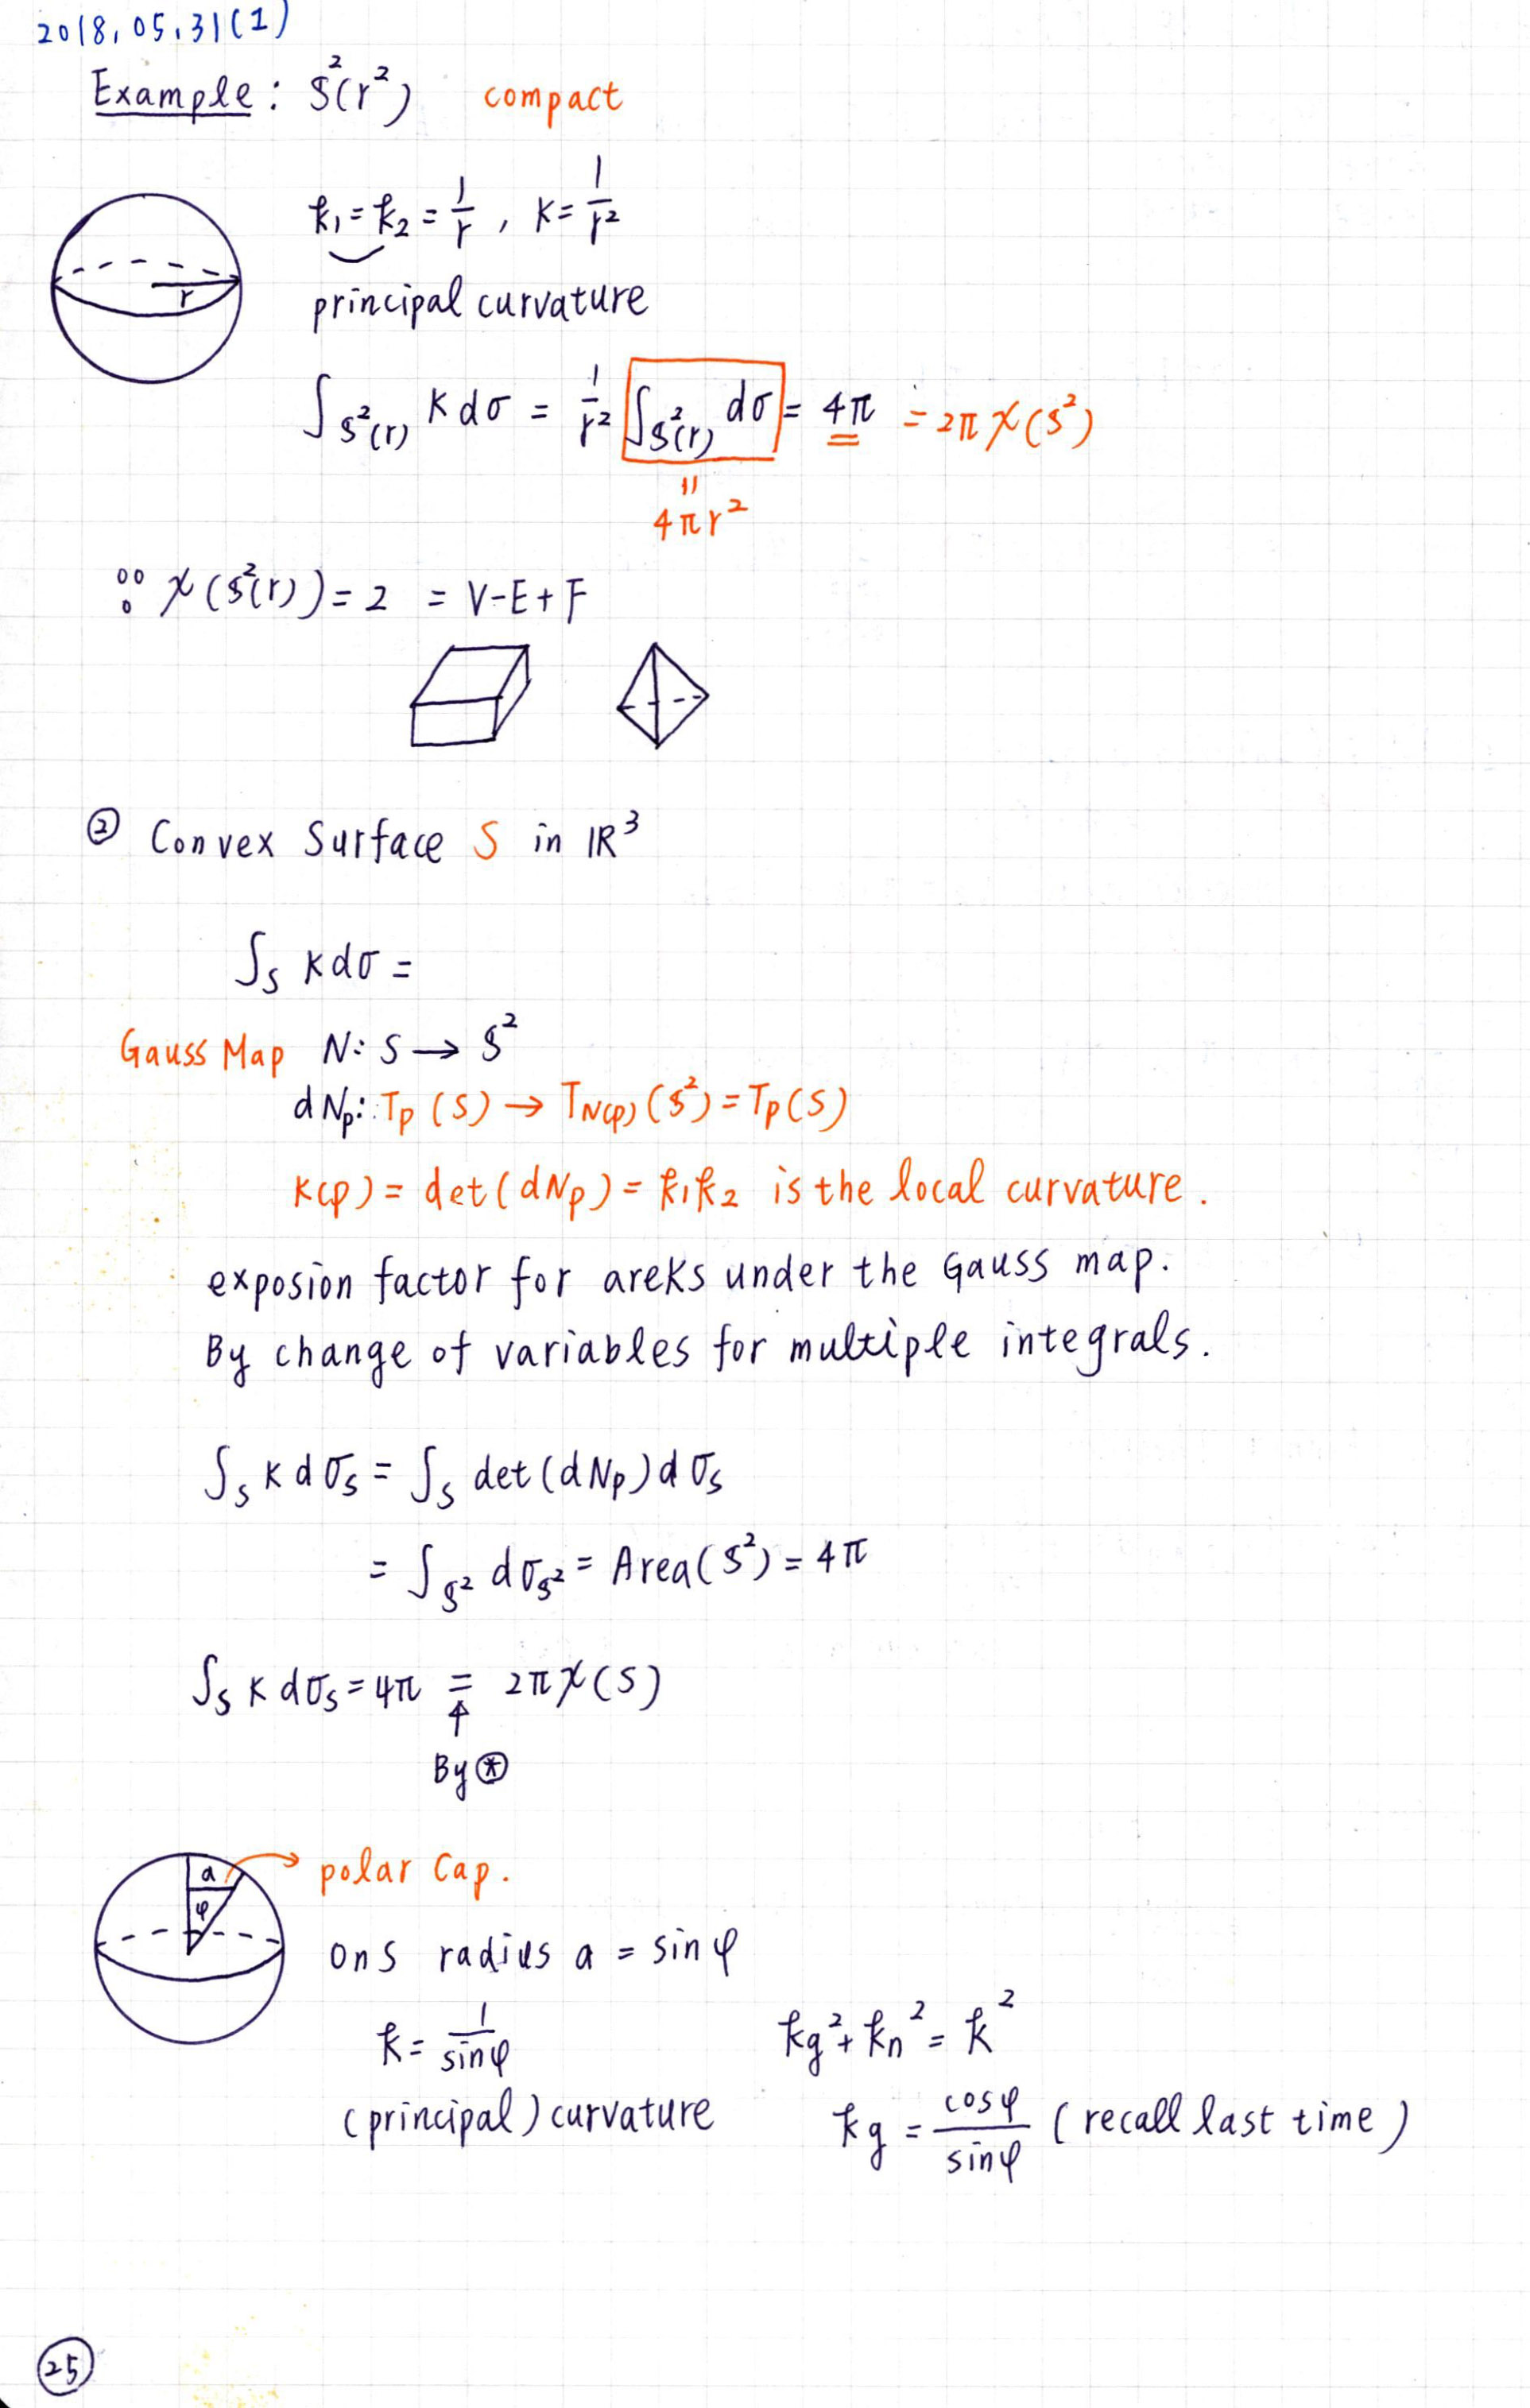 2018.05.31(1)
Example: S²(r²) compact
k₁ = k₂ = 1/r , K = 1/r²
principal curvature
r
∫_{S²(r)} K dσ = 1/r² ∫_{S²(r)} dσ = 4π = 2π χ(S²)
"
4πr²
∵ χ(S²(r)) = 2 = V-E+F
② Convex Surface S in ℝ³
∫_S K dσ =
Gauss Map N: S → S²
dN_p: T_p(S) → T_{N(p)}(S²) = T_p(S)
K(p) = det(dN_p) = k₁k₂ is the local curvature.
exposion factor for areks under the Gauss map.
By change of variables for multiple integrals.
∫_S K dσ_S = ∫_S det(dN_p) dσ_S
= ∫_{S²} dσ_{S²} = Area(S²) = 4π
∫_S K dσ_S = 4π = 2π χ(S)
↑
By ⊛
a → polar Cap.
φ
on S radius a = sin φ
k = 1/sin φ k_g² + k_n² = k²
(principal) curvature k_g = cos φ/sin φ (recall last time)
25